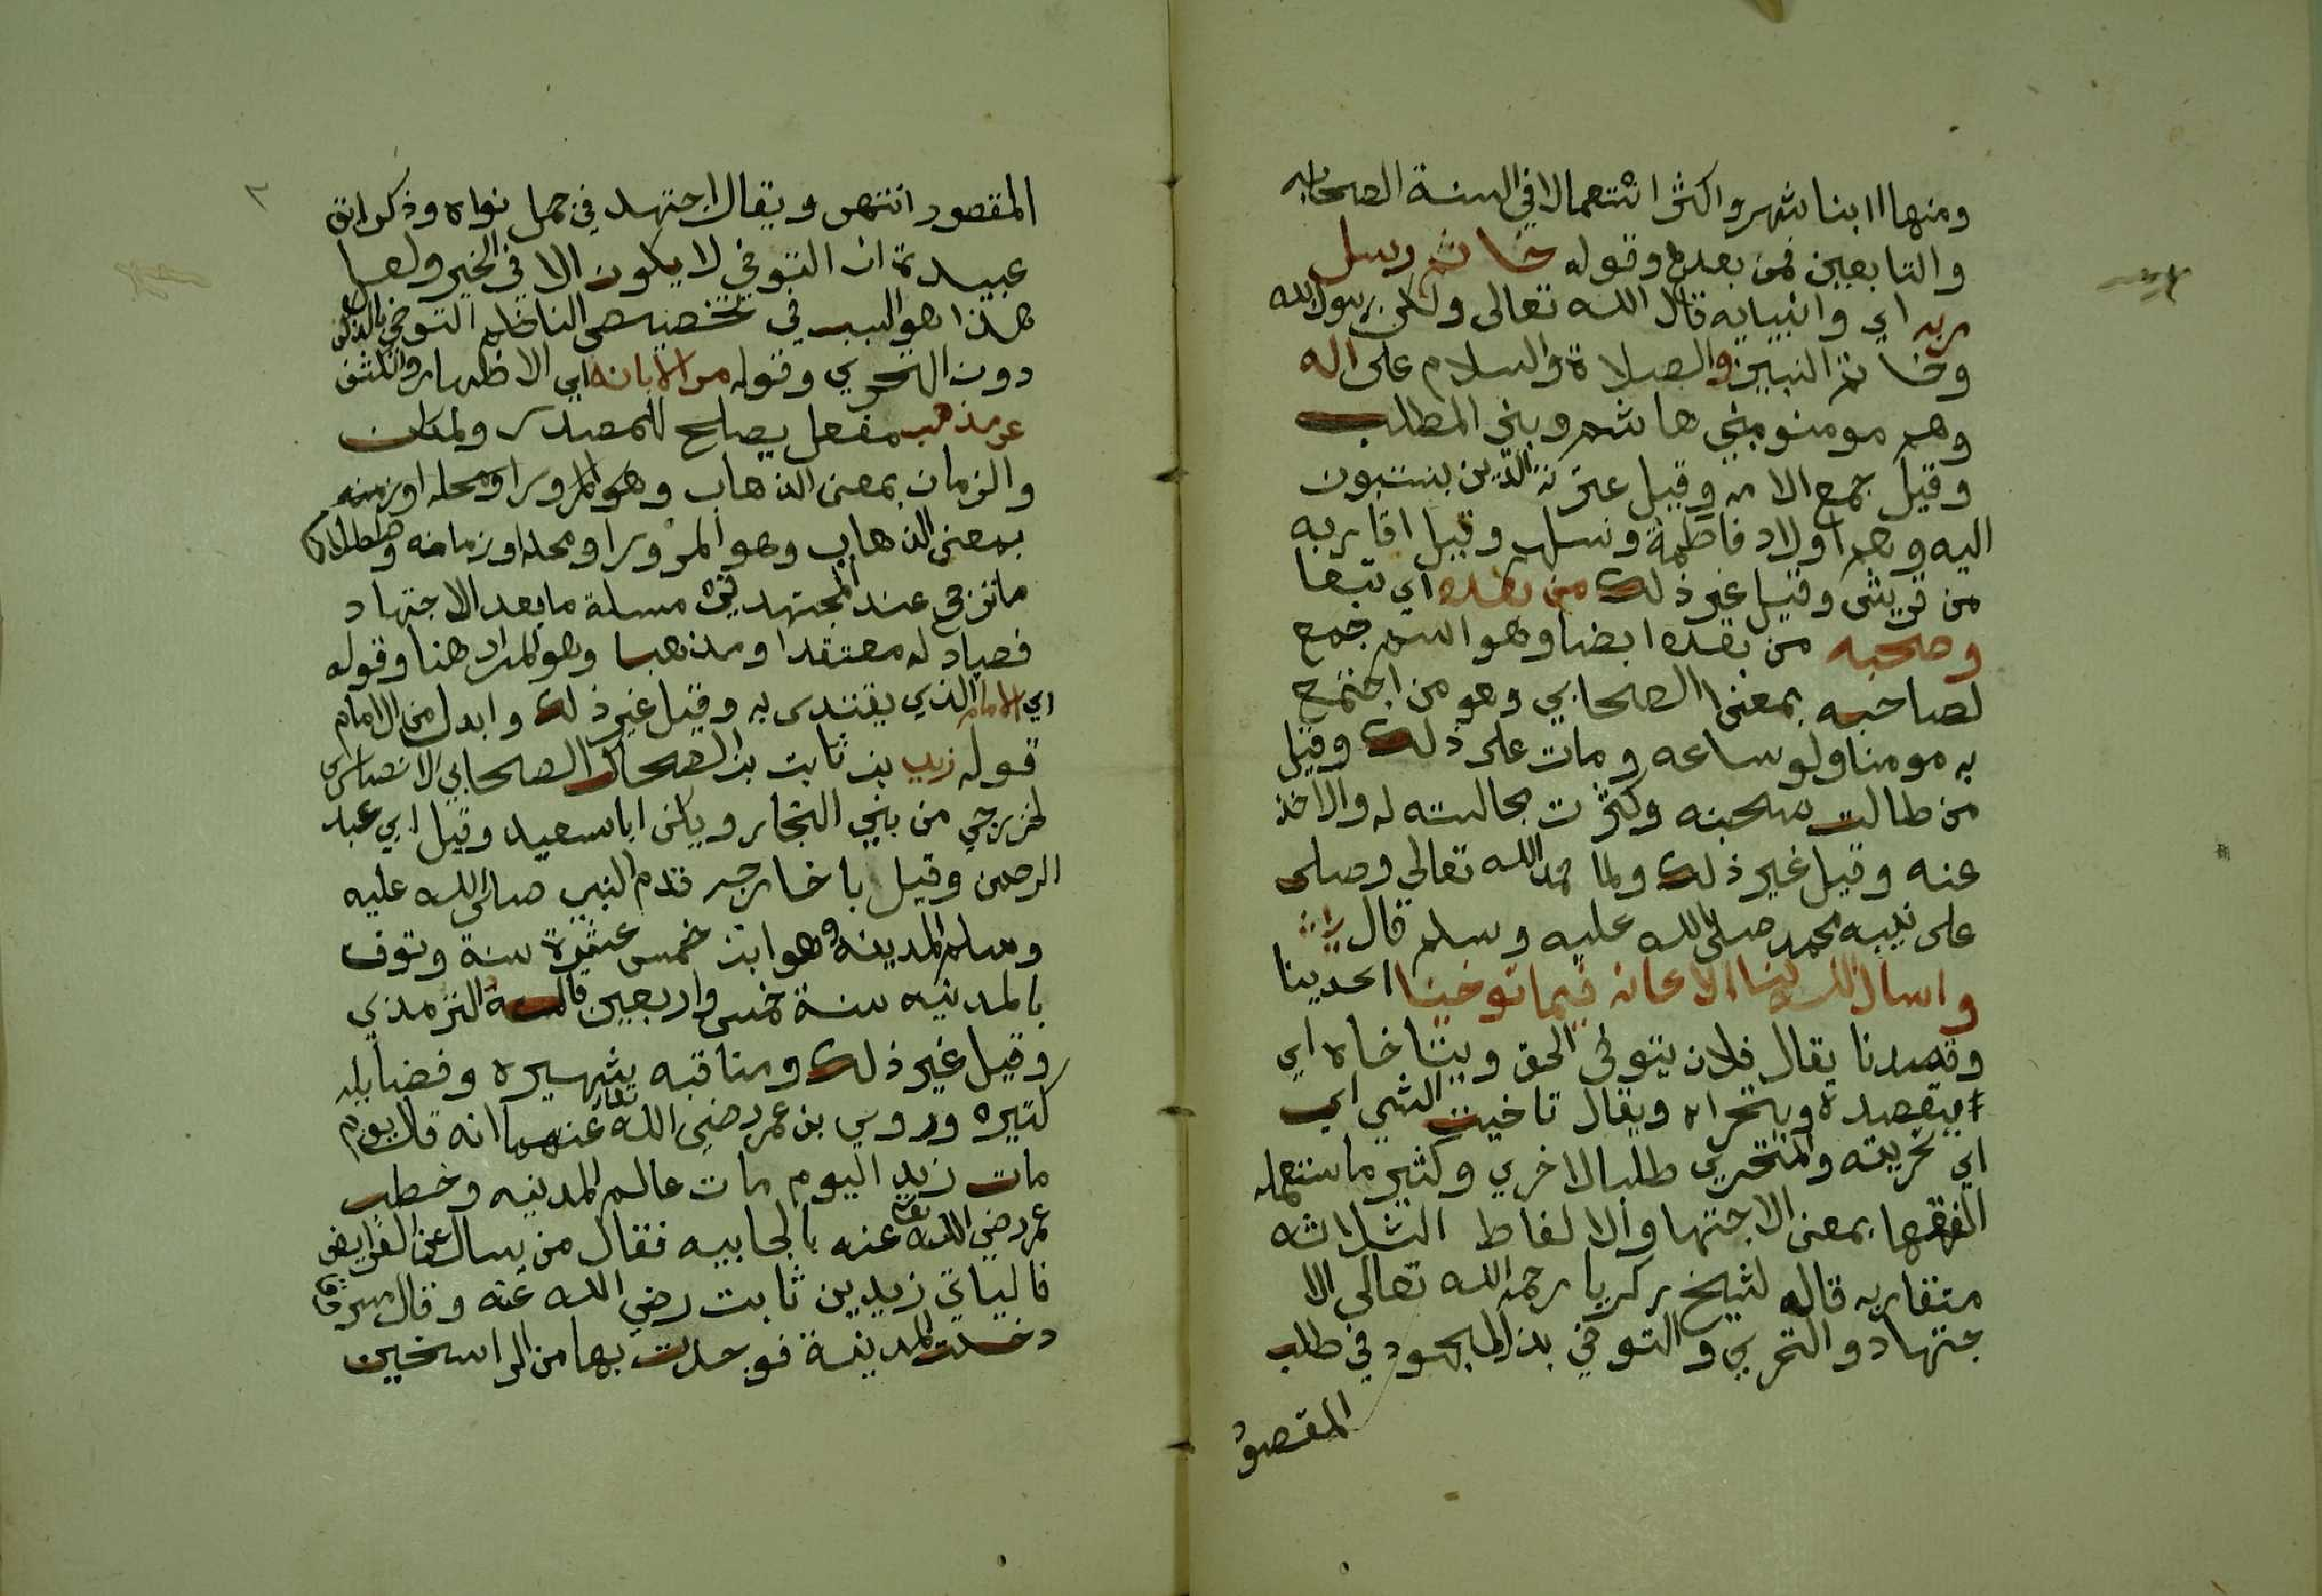 ومنها اابنا شهر واكثر اشتعمالا في السنة الصحابه
والتابعين فمن بعدهم وقوله خاتم رسل
ربه اي وانبيايه قال الله تعالى ولكن رسول الله
وخاتم النبيين والصلاة والسلام على اله
وهم مومنو بني هاشم وبني المطلب
وقيل جميع الامه وقيل عترته الذين ينتسبون
اليه وهم اولاد فاطمة ونسلهم وقيل اقاربه
من قريش وقيل غير ذلك من بعده اي تبعا
وصحبه من بعده ايضا وهو اسم جمع
لصاحبه بمعنى الصحابي وهو من اجتمع
به مومنا ولو ساعه ومات على ذلك وقيل
من طالت صحبته وكثرت مجالسته له والاخذ
عنه وقيل غير ذلك ولما حمد الله تعالى وصلى
على نبيه محمد صلى الله عليه وسلم قال
واسال الله لنا الاعانه فيما توخينا
وقصدنا يقال فلان يتوخى الحق ويتاخاه اي
يقصده ويتحراه ويقال تاخيت الشي اي
اي تحريته والتحري طلب الاحري وكثير ما ستعمله
الفقها بمعنى الاجتها والالفاظ الثلاثه
متقاربه قاله لشيخ زكريا رحمه الله تعالى الا
جتهاد والتحري والتوخي بذل المجهود في طلب
المقصود
٢
المقصود انتهى ويقال اجتهد في حمل نواه وذكر ابو
عبيدة ان التوخي لا يكون الا في الخير ولعل
هذا هو السبب في تخصيص الناظم التوخي بالذكر
دون التحري وقوله من الابانه اي الاظهار والكشف
عن مذهب مفعل يصلح للمصدر ولمكان
والزمان بمعنى الذهاب وهو المرور او محله او زمنه
بمعنى الذهاب وهو المرور او محله او زمانه
ما ترجح عند المجتهد في مسلة ما بعد الاجتهاد
فصار له معتقدا ومذهبا وهو المراد هنا وقوله
اي الامام الذي يقتدى به وقيل غير ذلك وابدل من الامام
قوله زيد بن ثابت بن الضحاك الصحابي الانصاري
لخزرجي من بني النجار ويكنى اباسعيد وقيل ابي عبد
الرحمن وقيل با خارجه قدم النبي صلى الله عليه
وسلم المدينه وهو ابن خمس عشرة سنة وتوف
بالمدنيه سنة خمس واربعين قاله الترمذي
وقيل غير ذلك ومناقبه شهيره وفضايله
كتيره وروي بن عمر رضي الله تعالى عنهما انه قال يوم
مات زيد اليوم مات عالم المدينه وخطب
عمر رضي الله تعالى عنه بالجابيه فقال من يسال عن الفرايض
فاليات زيد بن ثابت رضي الله عنه وقال مسروق
دخلت المدينة فوجدت بها من الراسخين